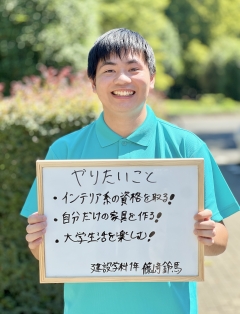 やりたいこと
・インテリア系の資格を取る!
・自分だけの家具を作る!
・大学生活を楽しむ!
建設学科1年